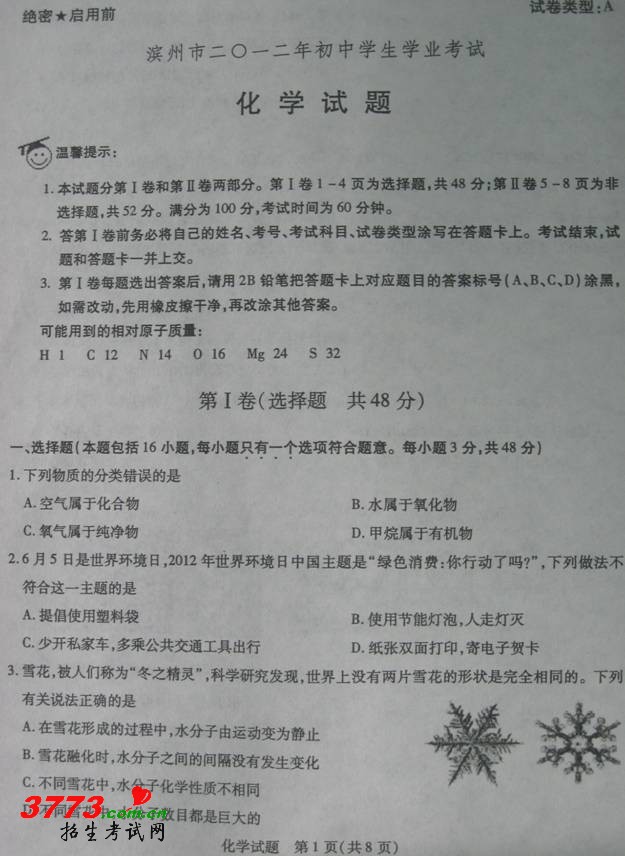 绝密★启用前
试卷类型:A
滨州市二〇一二年初中学生学业考试
化学试题
温馨提示:
1.本试题分第Ⅰ卷和第Ⅱ卷两部分。第Ⅰ卷1-4页为选择题,共48分;第Ⅱ卷5-8页为非
选择题,共52分。满分为100分,考试时间为60分钟。
2.答第Ⅰ卷前务必将自己的姓名、考号、考试科目、试卷类型涂写在答题卡上。考试结束,试
题和答题卡一并上交。
3.第Ⅰ卷每题选出答案后,请用2B铅笔把答题卡上对应题目的答案标号(A、B、C、D)涂黑,
如需改动,先用橡皮擦干净,再改涂其他答案。
可能用到的相对原子质量:
H 1 C 12 N 14 O 16 Mg 24 S 32
第Ⅰ卷(选择题 共48分)
一、选择题(本题包括16小题,每小题只有一个选项符合题意。每小题3分,共48分)
1.下列物质的分类错误的是
A.空气属于化合物 B.水属于氧化物
C.氧气属于纯净物 D.甲烷属于有机物
2.6月5日是世界环境日,2012年世界环境日中国主题是“绿色消费:你行动了吗?”,下列做法不
符合这一主题的是
A.提倡使用塑料袋 B.使用节能灯泡,人走灯灭
C.少开私家车,多乘公共交通工具出行 D.纸张双面打印,寄电子贺卡
3.雪花,被人们称为“冬之精灵”,科学研究发现,世界上没有两片雪花的形状是完全相同的。下列
有关说法正确的是
A.在雪花形成的过程中,水分子由运动变为静止
B.雪花融化时,水分子之间的间隔没有发生变化
C.不同雪花中,水分子化学性质不相同
D.不同雪花中,水分子数目都是巨大的
3773.com.cn
招生考试网
化学试题 第1页(共8页)